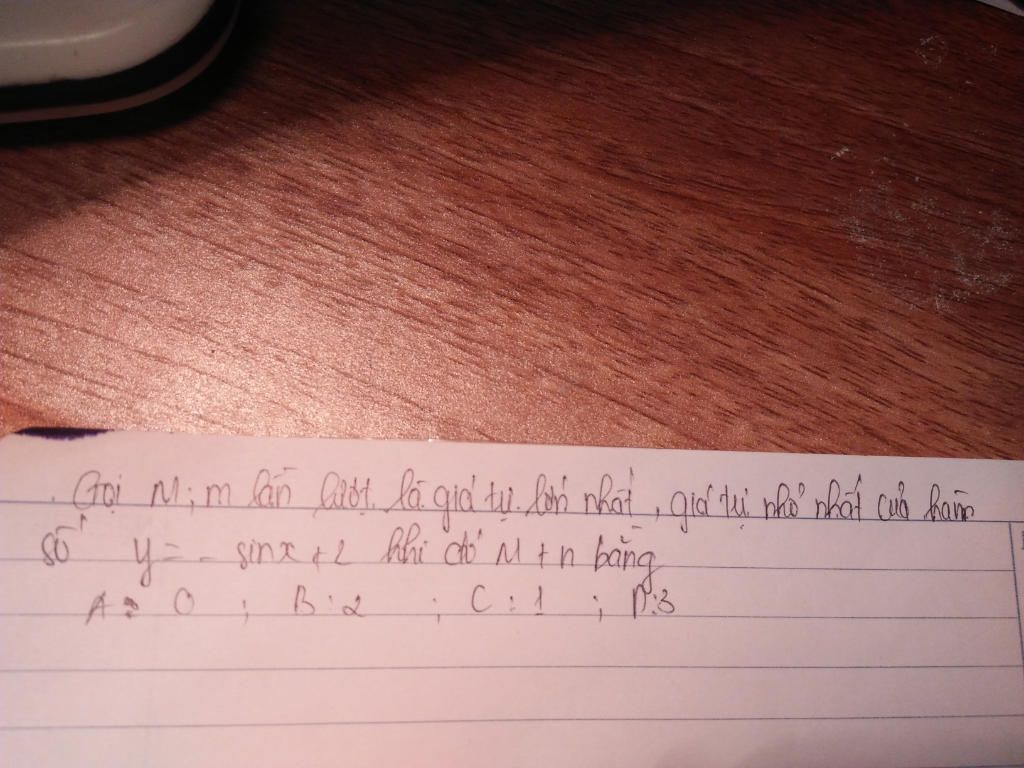 Gọi M; m lần lượt là giá tụ lớn nhất, giá tụ nhỏ nhất của hàm
số y = - sinx + 2 khi đó M + n bằng
A: 0 ; B: 2 ; C: 1 ; D: 3